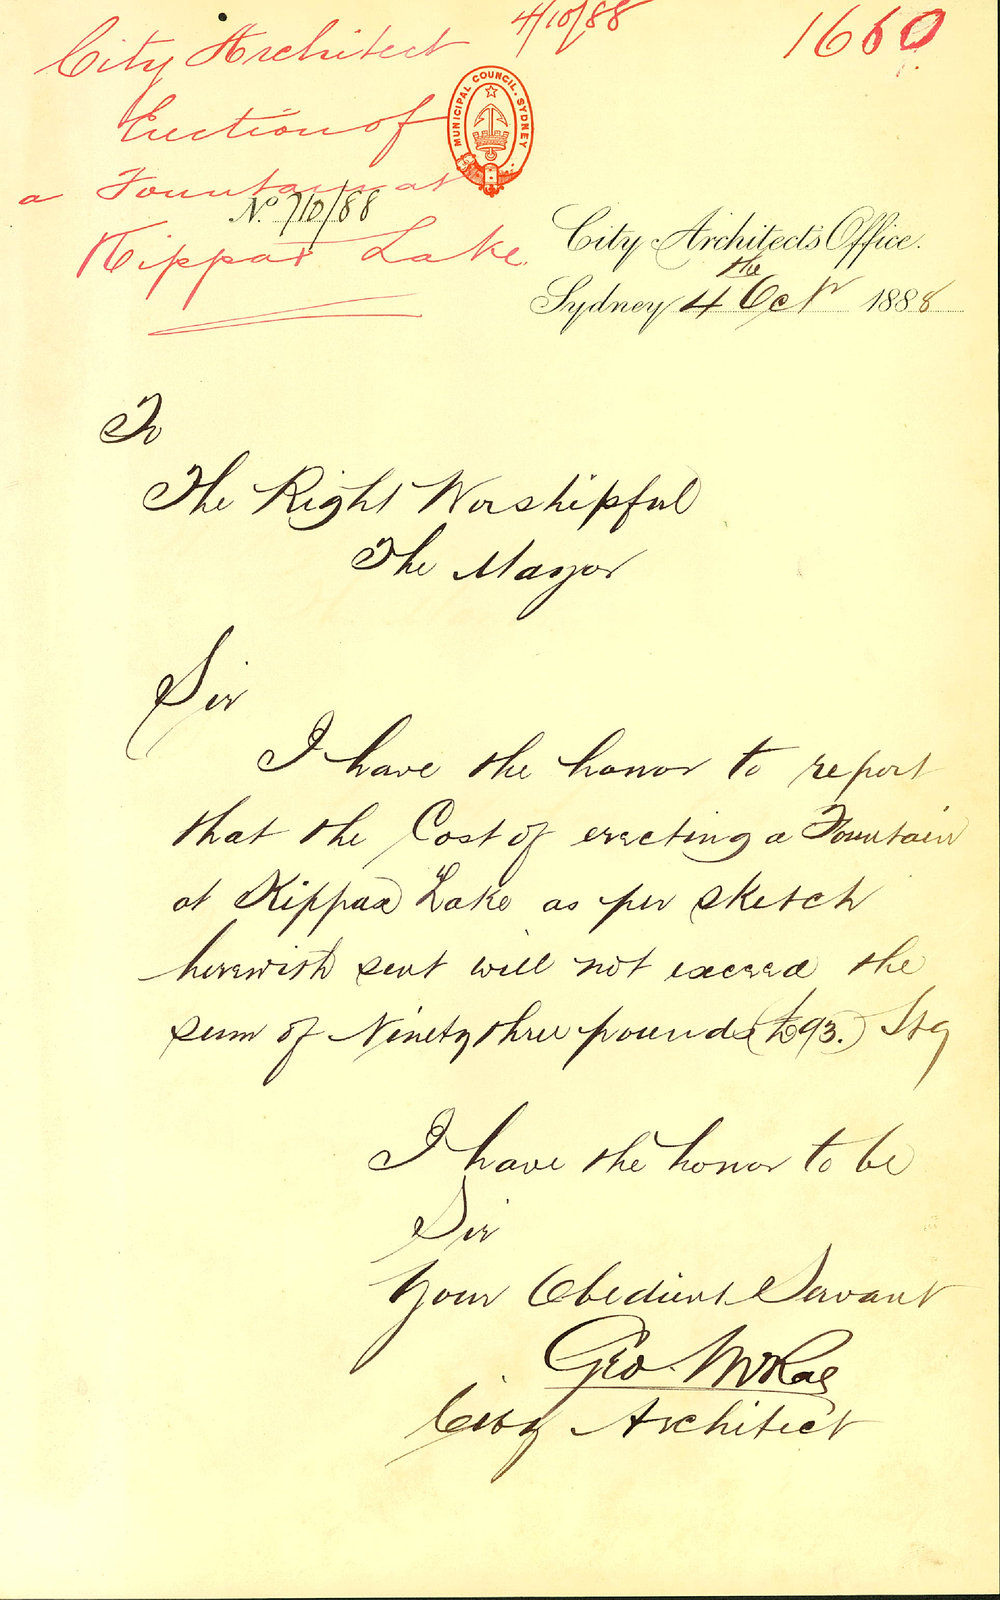 City Architect 4/10/88 1660
Erection of
a Fountain at
No 710/88
Kippax Lake.
MUNICIPAL COUNCIL. SYDNEY
City Architects Office.
Sydney 4the Oct 1888
To
The Right Worshipful
The Mayor
Sir
I have the honor to report
that the Cost of erecting a Fountain
at Kippax Lake as per sketch
herewith sent will not exceed the
sum of Ninety three pounds (£93.) Stg
I have the honor to be
Sir
Your Obedient Servant
Geo McRae
City Architect